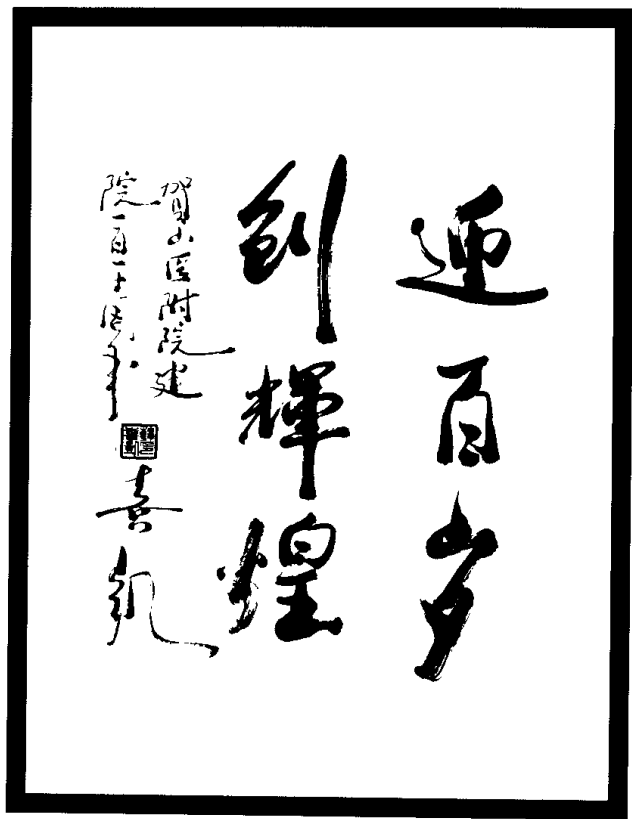 迎百岁
创輝煌
贺山医附院建
院一百一十周年
喜凯